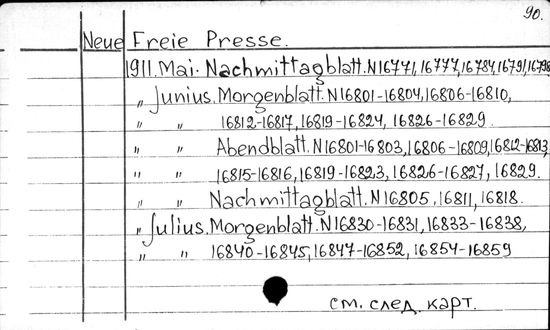 90.
Neue Freie Presse.
1911. Mai. Nachmittagblatt. N16771, 16777, 16784, 16791, 16798
„ Junius. Morgenblatt. N16801-16804, 16806-16810,
„ „ 16812-16817, 16819-16824, 16826-16829.
„ „ Abendblatt. N16801-16803, 16806-16809, 16812-16813,
„ „ 16815-16816, 16819-16823, 16826-16827, 16829.
„ „ Nachmittagblatt. N16805, 16811, 16818.
„ Julius. Morgenblatt. N16830-16831, 16833-16838,
„ „ 16840-16845, 16847-16852, 16854-16859
см. след. карт.